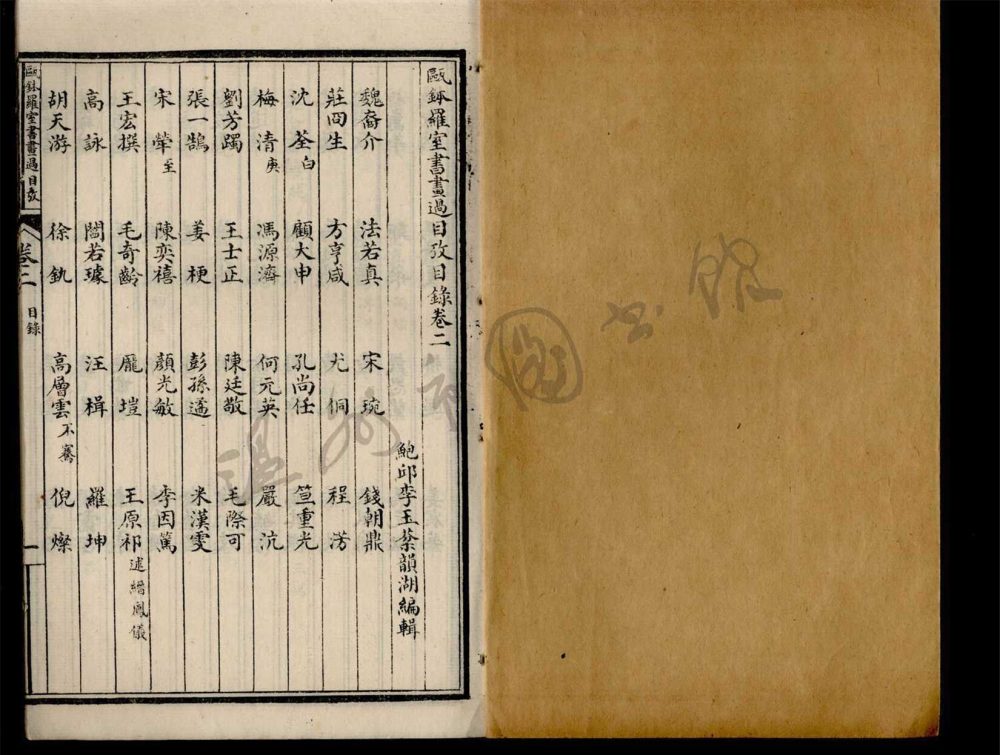 甌鉢羅室書畫過目攷目錄卷二
鮑邱李玉棻韻湖編輯
魏裔介　法若真　宋琬　錢朝鼎
莊冏生　方亨咸　尤侗　程淓
沈荃白　顧大申　孔尚任　笪重光
梅清庚　馮源濟　何元英　嚴沆
劉芳躅　王士正　陳廷敬　毛際可
張一鵠　姜梗　彭孫遹　米漢雯
宋犖至　陳奕禧　顏光敏　李因篤
王宏撰　毛奇齡　龐塏　王原祁述縉鳳儀
高詠　閻若璩　汪楫　羅坤
胡天游　徐釚　高層雲不騫　倪燦
甌鉢羅室書畫過目攷
卷二
目錄
一
溫州市圖书館